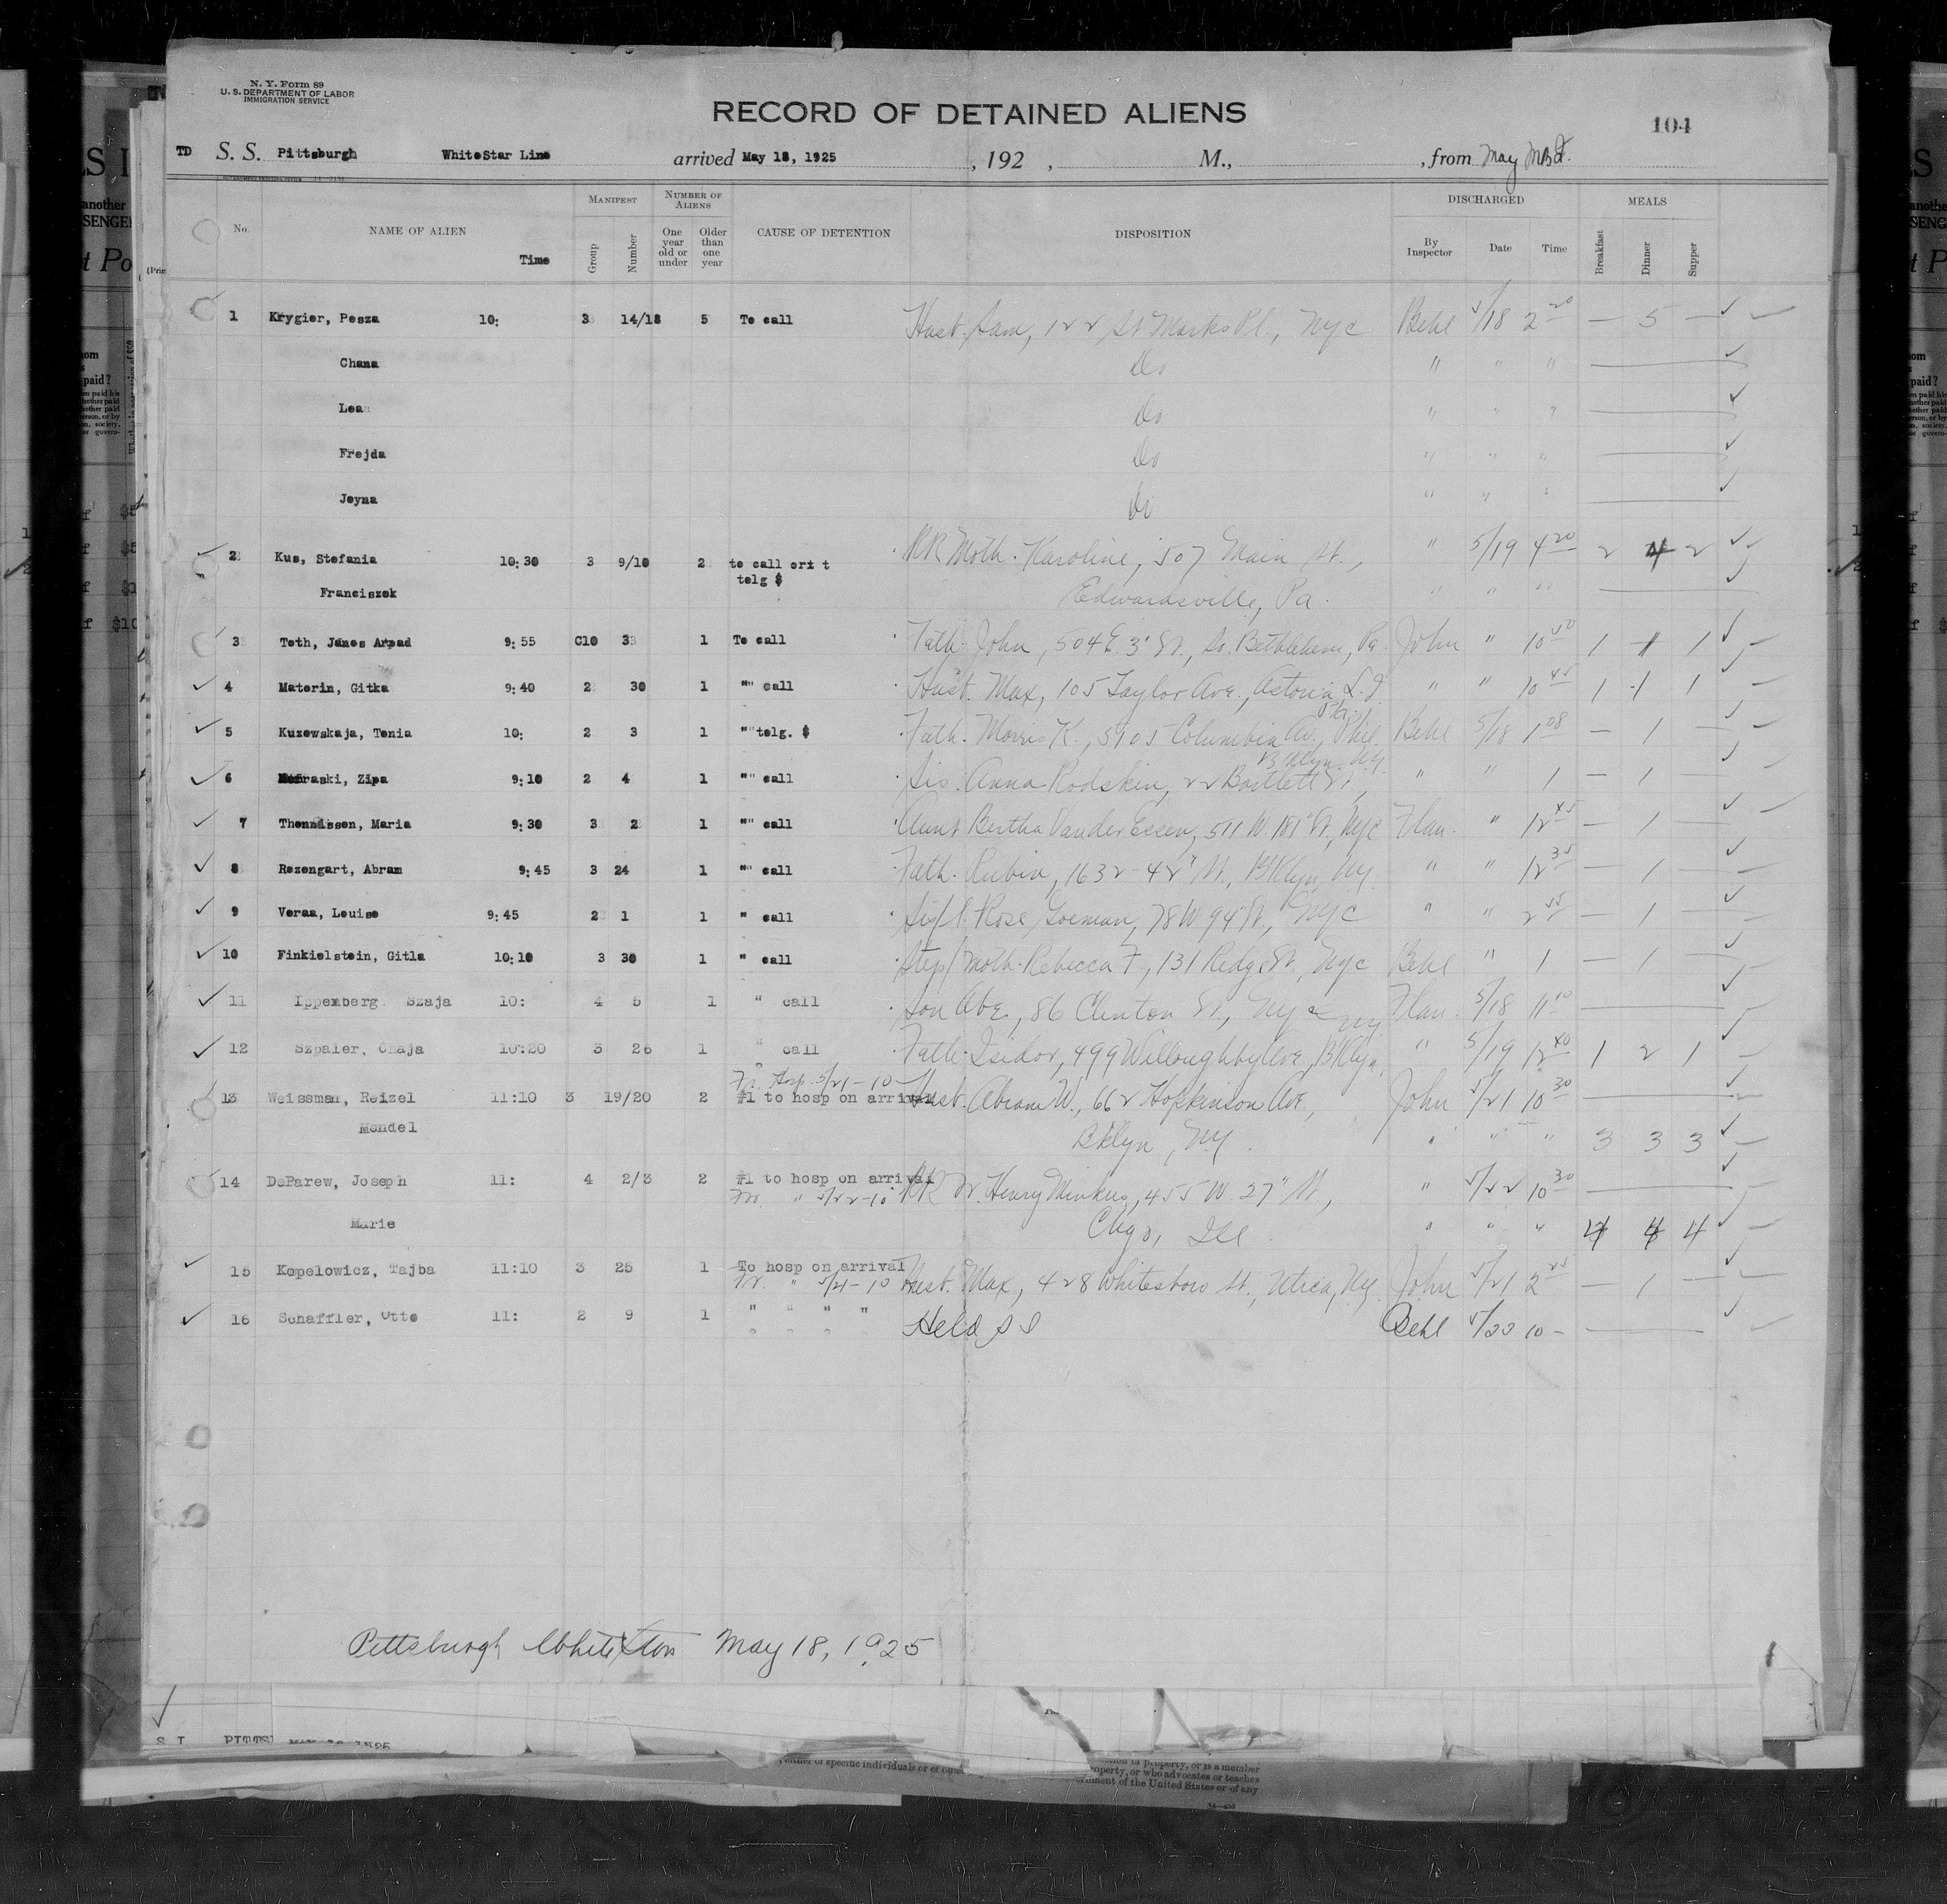 N. Y. Form 89
U. S. DEPARTMENT OF LABOR
IMMIGRATION SERVICE
RECORD OF DETAINED ALIENS
104
TD S. S. Pittsburgh WhiteStar Line arrived May 18, 1925, 192 , M., , from May
No. NAME OF ALIEN Time MANIFEST Group Number NUMBER OF ALIENS One year old or under Older than one year CAUSE OF DETENTION DISPOSITION DISCHARGED By Inspector Date Time MEALS Breakfast Dinner Supper
1 Krygier, Pesza 10: 3 14/18 5 To call Husb. Sam, 122 St Marks Pl., NYC Behl 5/18 2 20 — 5 —
Chana Do " " "
Lea Do " " "
Frejda Do " " "
Joyna Do " " "
2 Kus, Stefania 10:30 3 9/10 2 to call ori t RR Moth. Karoline, 507 Main St., " 5/19 4 20 2 4 2
telg $
Franciszek Edwardsville, Pa. " " "
3 Toth, Janos Arpad 9:55 C10 33 1 To call Fath. John, 504 E. 3" St., So. Bethlehem, Pa. John " 10 1 1 1
4 Materin, Gitka 9:40 2 30 1 "" call Husb. Max, 105 Taylor Ave., Astoria, L.I. " " 10 45 1 1 1
5 Kuzewskaja, Tonia 10: 2 3 1 "" telg. $ Fath. Morris K., 5905 Columbia Av., Phil. Pa. Behl 5/18 1 08 — 1 —
6 raski, Zipa 9:10 2 4 1 "" call Sis. Anna Rodskin, 22 Bartlett St., Bklyn NY. " " 1 — 1 —
7 Thennissen, Maria 9:30 3 2 1 "" call Aunt Bertha Vander Essen, 511 W. 181" St., NYC Flan. " 12 45 — 1 —
8 Rozengart, Abram 9:45 3 24 1 "" call Fath. Rubin, 1632-42" St., Bklyn NY " " 12 35 — 1 —
9 Veraa, Louise 9:45 2 1 1 " call Sis/l. Rose Goeman, 78 W 94" St., NYC " " 2 55 — 1 —
10 Finkielstein, Gitla 10:10 3 30 1 " call Step/Moth. Rebecca F., 131 Ridge St. NYC Behl " 1 — 1 —
11 Ippenberg Szaja 10: 4 5 1 " call Son Abe, 86 Clinton St., NYC Flan. 5/18 11 10
12 Szpaler, Chaja 10:20 3 26 1 " call Fath. Isidor, 499 Willoughby Ave., Bklyn, NY " 5/19 12 40 1 2 1
Fr. Hosp. 5/21-10
13 Weissman, Reizel 11:10 3 19/20 2 #1 to hosp on arrival Husb. Abram W., 662 Hopkinson Ave., John 5/21 10 30
Mendel Bklyn, NY. " " " 3 3 3
14 DeParew, Joseph 11: 4 2/3 2 #1 to hosp on arrival RR Fr. Henry Minkus, 455 W. 27" St., " 5/22 10 30
Fr. " 5/22-10
Marie Chgo, Ill. " " " 4 4 4
15 Kopelowicz, Tajba 11:10 3 25 1 To hosp on arrival
Fr. " 5/21-10 Husb. Max, 428 Whitesboro St., Utica, NY. John 5/21 2 25 — 1 —
16 Schaffler, Otto 11: 2 9 1 " " " " Held S I Behl 5/22 10 —
" " " "
Pittsburgh White Star May 18, 1925
S I PITTS